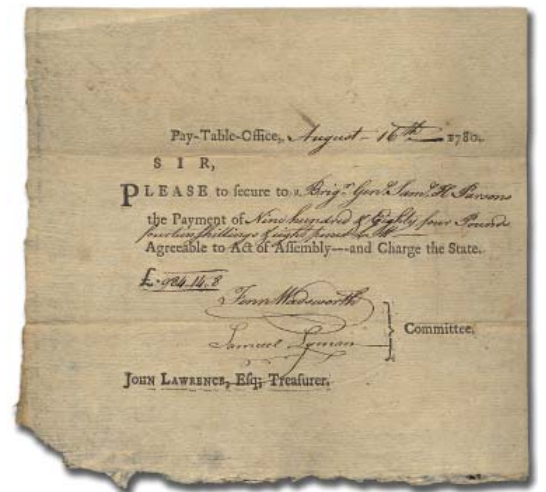 Pay-Table-Office, August 16th 1780.
S I R,
PLEASE to secure to a Brigr Genl Saml H Parsons
the Payment of Nine hundred & Eighty four Pounds
fourteen shillings & eight pence L M
Agreeable to Act of Assembly---and Charge the State.
£ 984.14.8
Fenn Wadsworth
Samuel Lyman
Committee.
JOHN LAWRENCE, Esq; Treasurer.